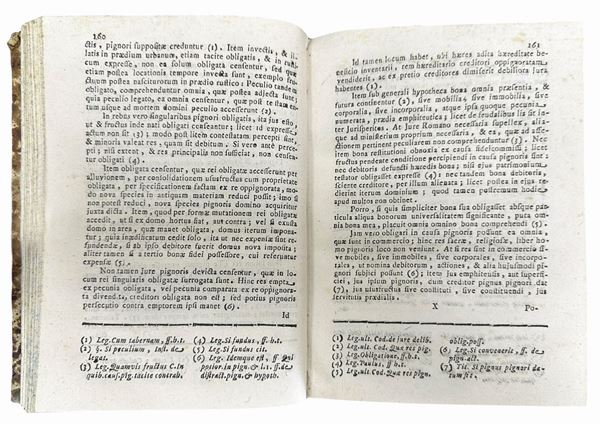 160
ctis, pignori suppositæ creduntur (1). Item invectis, & il-
latis in prædium urbanum, etiam tacite obligatis, & in rusti-
cum expresse, non ea solum obligata censentur, sed quæ
etiam postea locationis tempore invecta sunt, exemplo fru-
ctuum postea natorum in prædio rustico; Peculio tandem
obligato, comprehenduntur omnia, quæ postea adjecta sunt;
quia peculio legato, ea omnia censentur, quæ post te stamen-
tum usque ad mortem domini peculio accesserunt (2).
In rebus vero singularibus pignori obligatis, ita jus est,
ut & fructus inde nati obligati censeantur; licet id expresse
actum non sit (3); modo post litem contestatam percepti sint,
& minoris valeat res, quam sit debitum. Si vero ante perce-
pti; nisi extent, & res principalis non sufficiat, non censen-
tur obligati (4).
Item obligata censentur, quæ rei obligatæ accesserunt per
alluvionem, per consolidationem ususfructus cum proprietate
obligata, per specificationem factam ex re oppignorata, mo-
do nova species in antiquam materiam reduci possit; imo si
non potest reduci, nova species pignoris domino acquiritur
juxta dicta. Item, quod per formæ mutationem rei obligatæ
accedit, ut si ex domo hortus fiat, aut contra; vel si exusta
domo in area, quæ manet obligata, domus iterum imponan-
tur; quia inædificatum cedit solo, ita ut nec expensæ sint re-
fundendæ, si ab ipso debitore fuerit domus nova imposita;
aliter tamen si a tertio bonæ fidei possessore, cui referuntur
expensæ (5).
Non tamen jure pignoris devicta censentur, quæ in lo-
cum rei singularis obligatæ surrogata sunt. Hinc res empta
ex pecunia obligata, vel pecunia comparata ex re oppignora-
ta divendita, creditori obligata non est; sed potius pignoris
persecutio contra emptorem ipsi manet (6).
Id
(1) Leg. Cum tabernam, ff. h.t.
(2) §. Si peculium, Inst. de
legat.
(3) Leg. Quamvis fructus C. In
quib. cauf. pig. tacite contrab.
(4) Leg. Si fundus, ff. h.t.
(5) Leg. Si fundus cit.
(6) Leg. Idemque est, ff Qui
potior. in pign. & l. 1. ff. de
distract. pign. & hypoth.
161
Id tamen locum habet, nisi hæres adita hæreditate be-
neficio inventarii, rem hæreditario creditori oppignoratam
vendiderit, ac ex pretio creditores dimiserit debitiora jura
habentes (1).
Item sub generali hypotheca bona omnia præsentia, &
futura continentur (2), sive mobilia, sive immobilia, sive
corporalia, sive incorporalia, atque ipsa quoque pecunia
numerata, prædia emphiteutica; licet de feudalibus in sit in-
ter Jurisperitos. At Jure Romano necessaria supellex, alia-
que ad ministerium proprium necessaria, & ea, quæ ad affe-
ctionem pertinent peculiarem non comprehenduntur (3). Nec
item bona restitutioni obnoxia ex causa fideicommissi; licet
fructus pendente conditione percipiendi in causa pignoris sint;
nec debitoris defuncti hæredis bona; nisi ejus patrimonium te-
stetur expresse (4): nec tandem bona debitoria, si re-
sciente creditore, per illum alienata; licet postea in ejus
reierint iterum dominium; quod tamen postremum hodie
apud multos non obtinet.
Porro, si quis simpliciter bona sua obligasset absque par-
ticula aliqua bonorum universalitatem significante, puta om-
nia bona mea, placuit omnino omnia bona comprehendi (5).
Jam vero obligari in causa pignoris possent ea omnia,
quæ sunt in commercio; hinc res sacræ, religiosæ, liber ho-
mo pignoris loco non veniunt. At si res sunt in commercio si-
ve mobiles, sive immobiles, sive corporales, sive incorpora-
les, ut nomina debitorum, actiones, & alia hujusmodi pi-
gnori subjici possunt (6). Item jus emphiteusis, aut superfi-
ciei, jus pignoris ipsum, cum pignus pignori dari possit
(7), jus usufructus sive constituti, sive constituendi, jus
servitutis prædialis.
X
Po-
(1) Leg. ult. Cod. de jure delib.
(2) Leg. ult. Cod. Quæ res pig.
(3) Leg. Obligatione, ff. h.t.
(4) Leg. Paulus, ff. h.t.
(5) Leg. ult. Cod. Quæ res pign.
oblig. poss.
(6) Leg. Si convenerit, ff. de
pign. act.
(7) Tit. Si pignus pignori da-
tum sit.